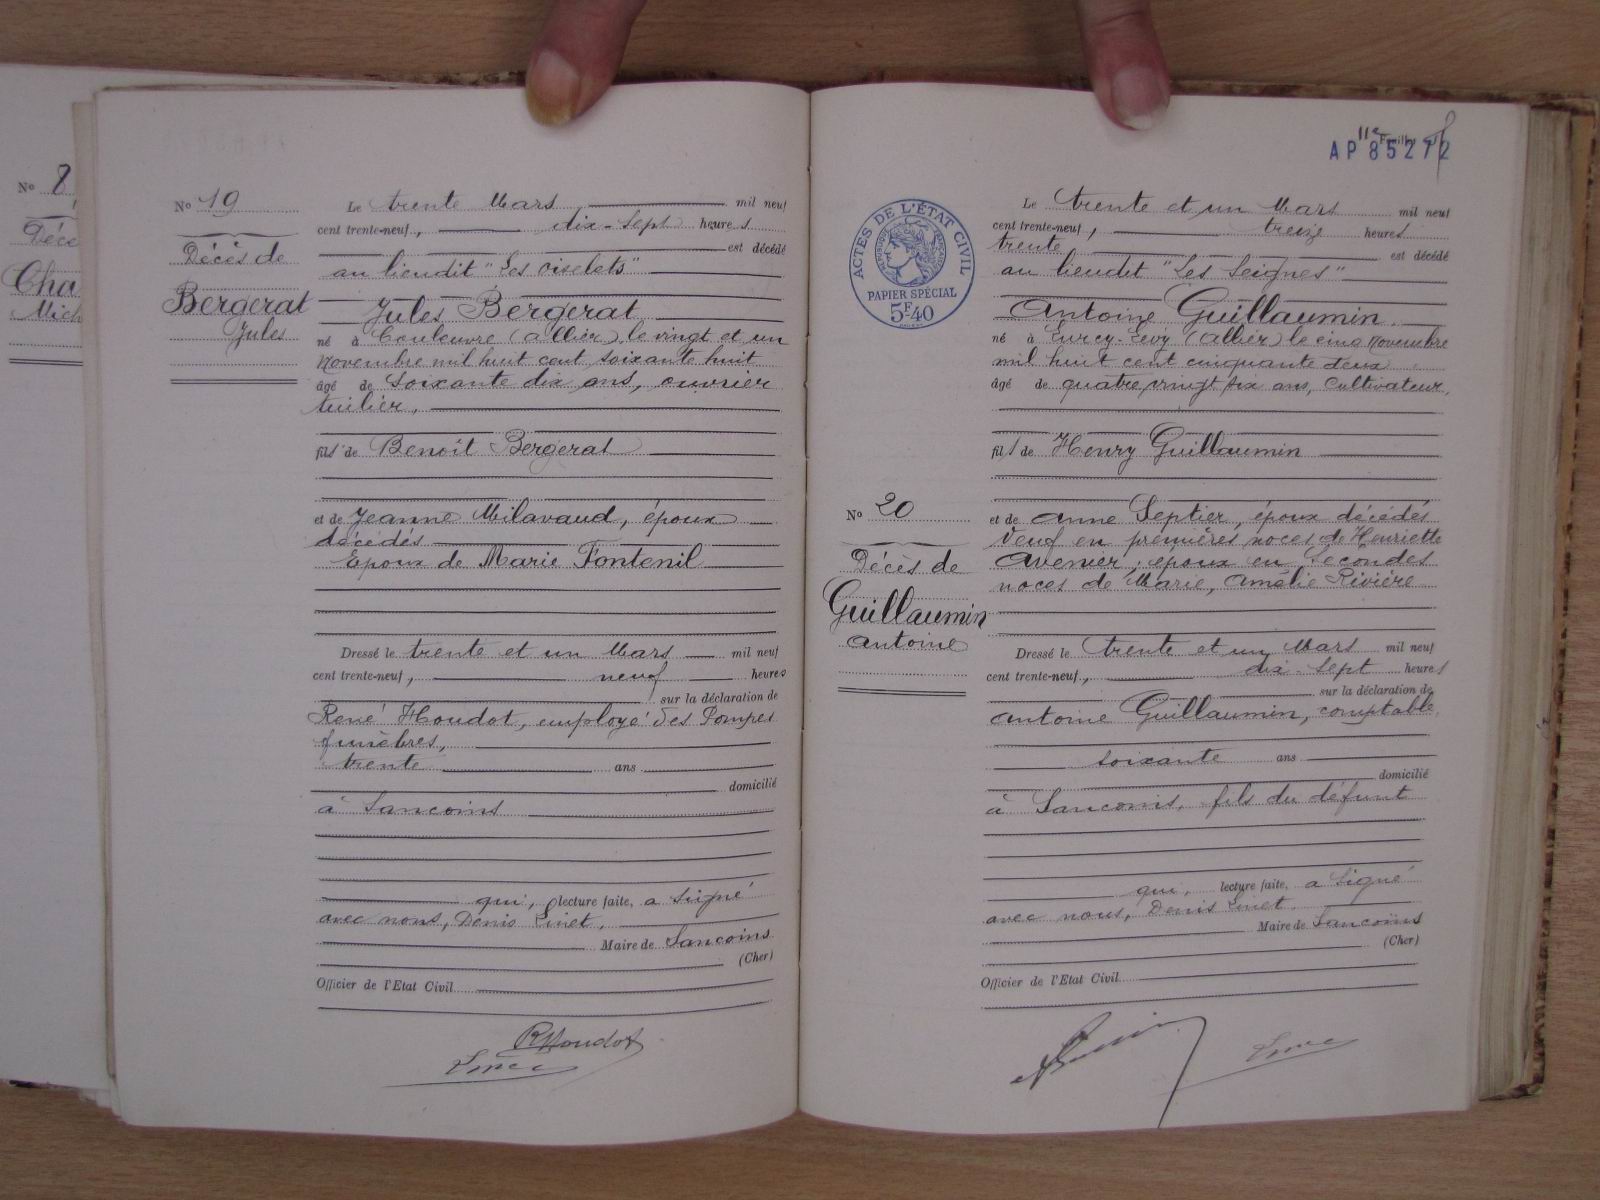 No 8
Déce
Cha
Mich
No 19
Décès de
Bergerat
Jules
Le trente Mars mil neuf
cent trente-neuf, dix-sept heures
est décédé
au lieudit "Les oiselets"
Jules Bergerat
né à Couleuvre (Allier) le vingt et un
Novembre mil huit cent soixante huit
âgé de soixante dix ans, ouvrier
tuilier,
fils de Benoît Bergerat
et de Jeanne Milavaud, époux
décédés
Epoux de Marie Fontenil
Dressé le trente et un Mars mil neuf
cent trente-neuf, neuf heures
sur la déclaration de
René Houdot, employé des Pompes
funèbres,
trente ans
domicilié
à Sancoins
qui, lecture faite, a signé
avec nous, Denis Linet,
Maire de Sancoins
(Cher)
Officier de l'Etat Civil
RHoudot
11e Feuillet
AP 85272
ACTES DE L'ÉTAT CIVIL
PAPIER SPÉCIAL
5F40
No 20
Décès de
Guillaumin
Antoine
Le trente et un Mars mil neuf
cent trente-neuf, treize heures
trente est décédé
au lieudit "Les Seignes"
Antoine Guillaumin
né à Lurcy-Levy (Allier) le cinq Novembre
mil huit cent cinquante deux
âgé de quatre vingt six ans, Cultivateur,
fils de Henry Guillaumin
et de Anne Septier, époux décédés
Veuf en premières noces de Henriette
Avenier, époux en secondes
noces de Marie, Amélie Rivière
Dressé le trente et un Mars mil neuf
cent trente-neuf, dix-sept heures
sur la déclaration de
Antoine Guillaumin, comptable,
soixante ans
domicilié
à Sancoins, fils du défunt
qui, lecture faite, a signé
avec nous, Denis Linet,
Maire de Sancoins
(Cher)
Officier de l'Etat Civil